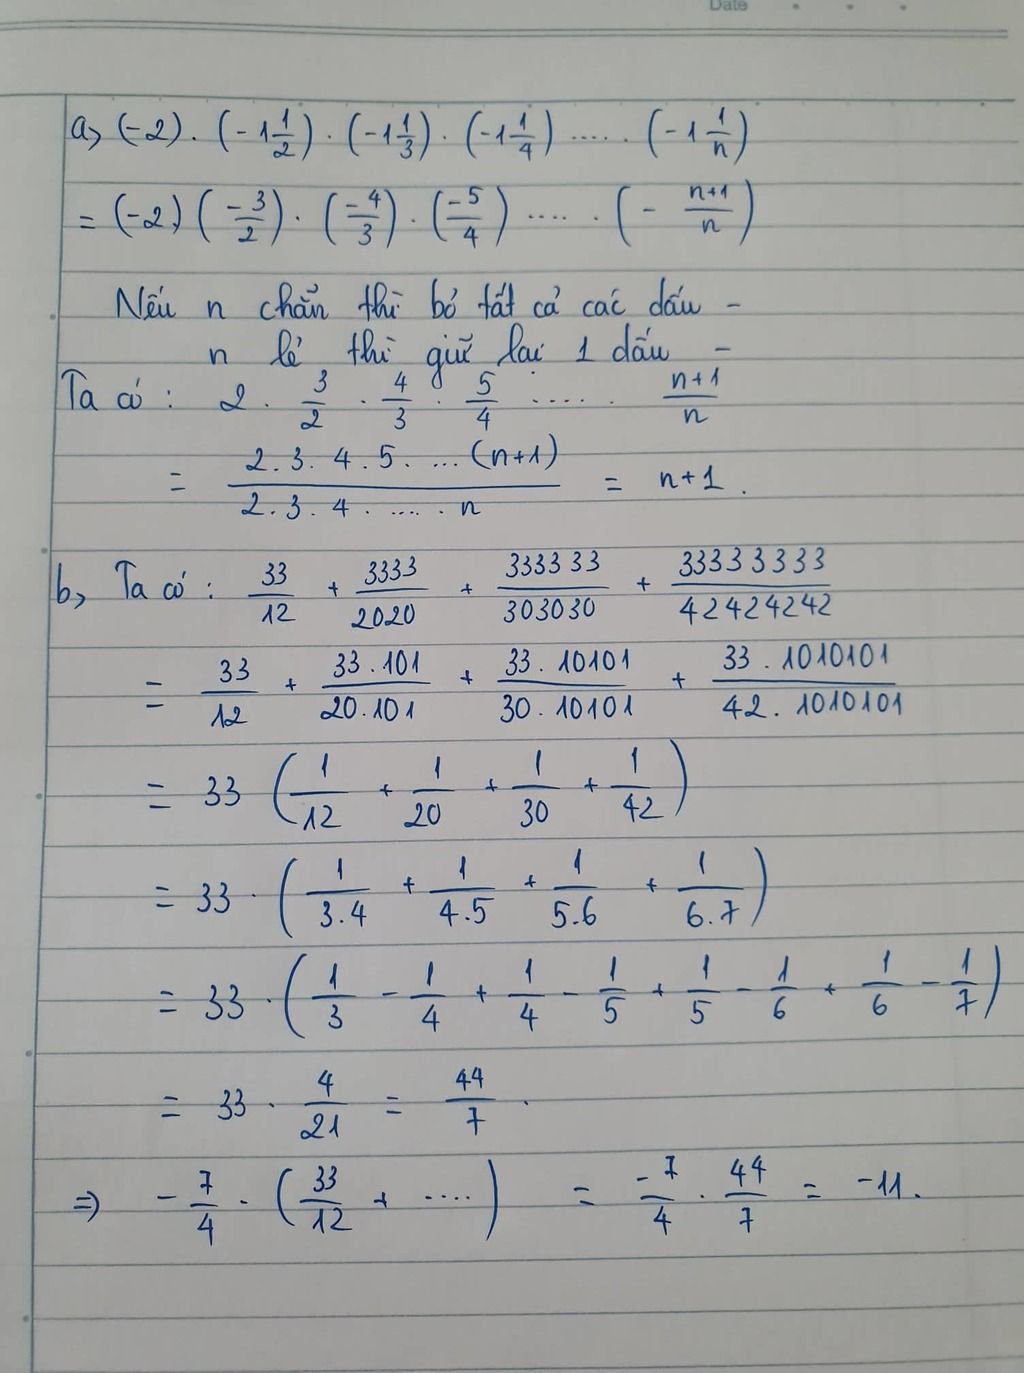 Date
a, (-2) . (-1 1/2) . (-1 1/3) . (-1 1/4) ..... (-1 1/n)
= (-2) (-3/2) . (-4/3) . (-5/4) ..... (- n+1/n)
Nếu n chẵn thì bỏ tất cả các dấu -
n lẻ thì giữ lại 1 dấu -
Ta có : 2 . 3/2 . 4/3 . 5/4 ..... n+1/n
= 2.3.4.5. ...(n+1) / 2.3.4. ..... n = n+1 .
b, Ta có : 33/12 + 3333/2020 + 333333/303030 + 33333333/42424242
= 33/12 + 33.101/20.101 + 33.10101/30.10101 + 33.1010101/42.1010101
= 33 (1/12 + 1/20 + 1/30 + 1/42)
= 33 . (1/3.4 + 1/4.5 + 1/5.6 + 1/6.7)
= 33 . (1/3 - 1/4 + 1/4 - 1/5 + 1/5 - 1/6 + 1/6 - 1/7)
= 33 . 4/21 = 44/7 .
=> - 7/4 . (33/12 + ....) = -7/4 . 44/7 = -11.